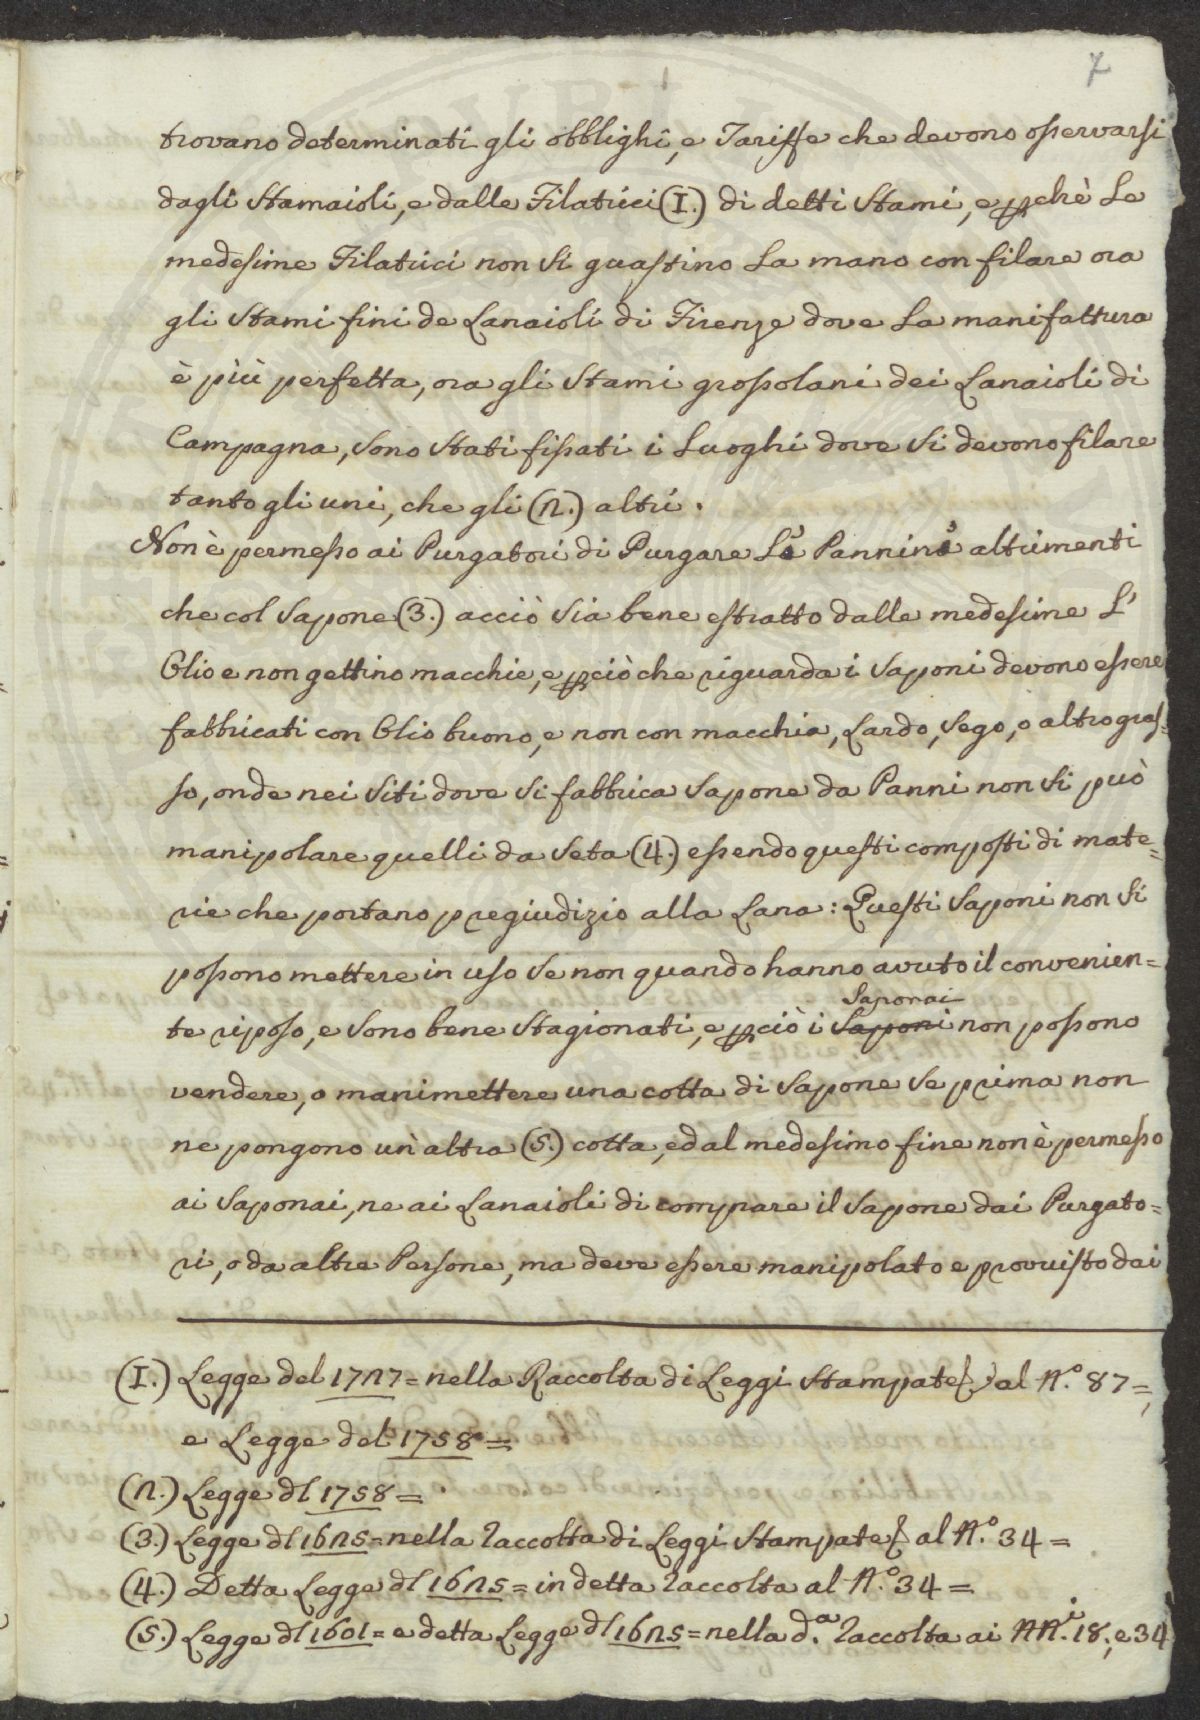 7
trovano determinati gli obblighi, e Tariffe che devono osservarsi
dagli Stamaioli, e dalle Filatrici (1.) di detti Stami, e pchè Le
medesime Filatrici non si guastino La mano con filare ora
gli Stami fini de Lanaioli di Firenze dove La manifattura
è più perfetta, ora gli Stami grossolani dei Lanaioli di
Campagna, sono stati fissati i Luoghi dove si devono filare
tanto gli uni, che gli (2.) altri.
Non è permesso ai Purgatori di Purgare Li Pannini altrimenti
che col Sapone (3.) acciò sia bene estratto dalle medesime L'
Olio e non gettino macchie, e pciò che riguarda i Saponi devono essere
fabbricati con Olio buono, e non con macchia, Lardo, Sego, o altro gras=
so, onde nei Siti dove si fabbrica Sapone da Panni non si può
manipolare quelli da Seta (4.) essendo questi composti di mate=
rie che portano pregiudizio alla Lana: Questi Saponi non si
possono mettere in uso se non quando hanno avuto il convenien=
Saponai
te riposo, e sono bene Stagionati, e pciò i Saponi non possono
vendere, o manimettere una cotta di Sapone se prima non
ne pongono un'altra (5.) cotta, ed al medesimo fine non è permesso
ai Saponai, ne ai Lanaioli di comprare il Sapone dai Purgato=
ri, o da altre Persone, ma deve essere manipolato e provvisto dai
(1.) Legge del 1727= nella Raccolta di Leggi Stampate al N.º 87=,
e Legge del 1758=
(2.) Legge dl 1758=
(3.) Legge dl 1625= nella Raccolta di Leggi Stampate al N.º 34=
(4.) Detta Legge dl 1625= in detta Raccolta al N.º 34=
(5.) Legge dl 1601= e detta Legge dl 1625= nella d.ª Raccolta ai NN.i 18, e 34